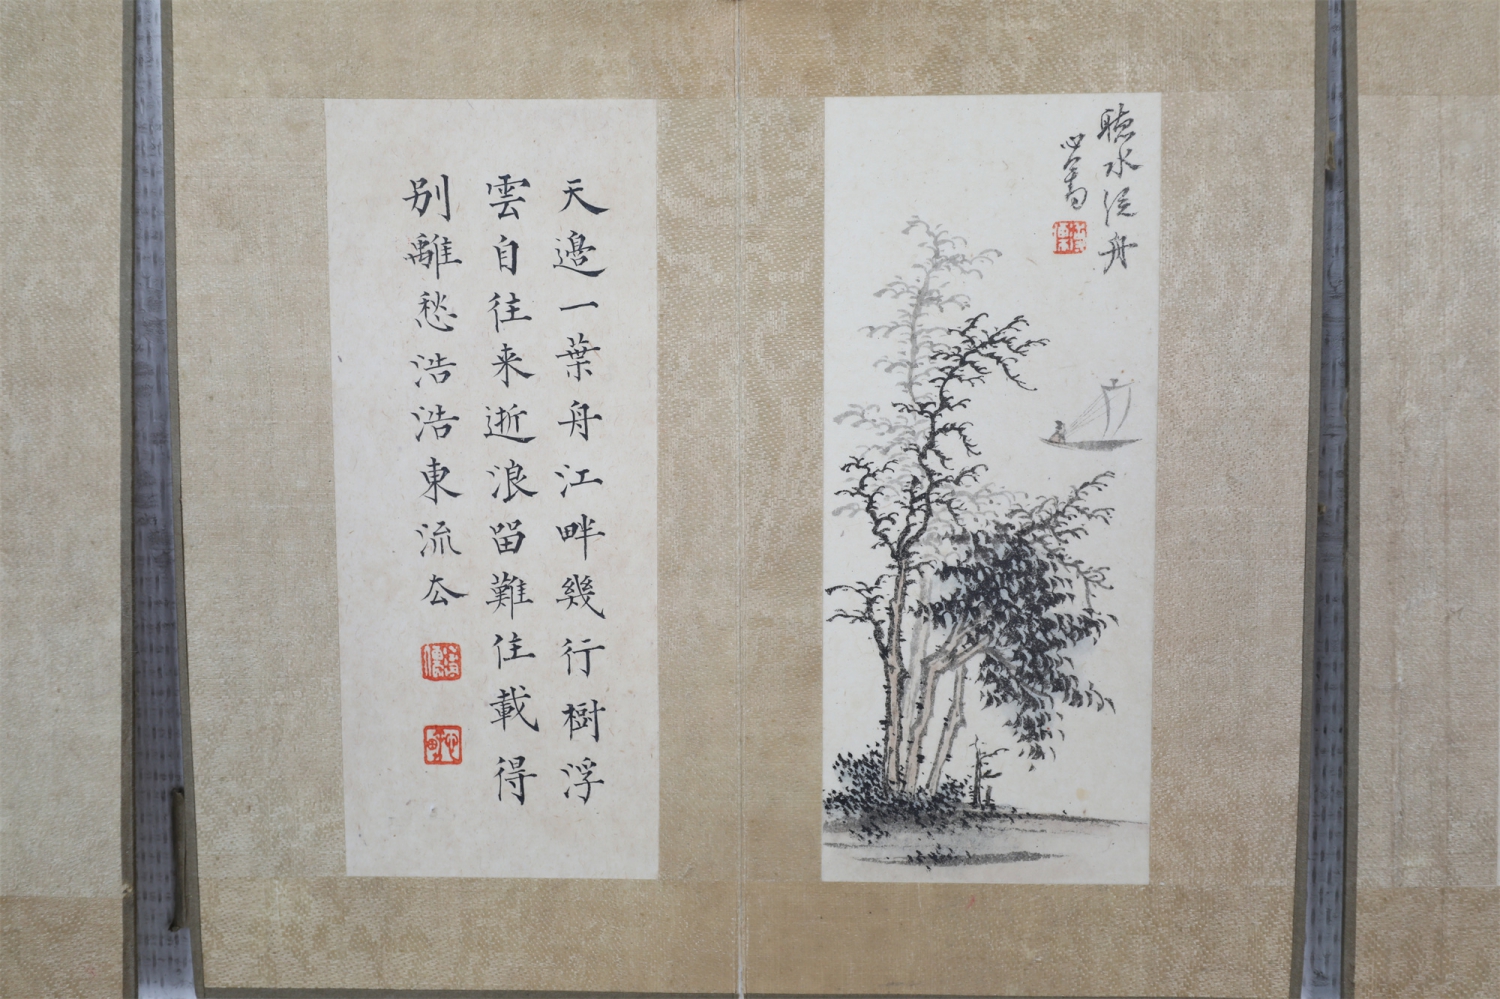 聽水泛舟
心畬
天邊一葉舟江畔幾行樹浮
雲自往来逝浪留難住載得
別離愁浩浩東流厺
溥儒
心畬